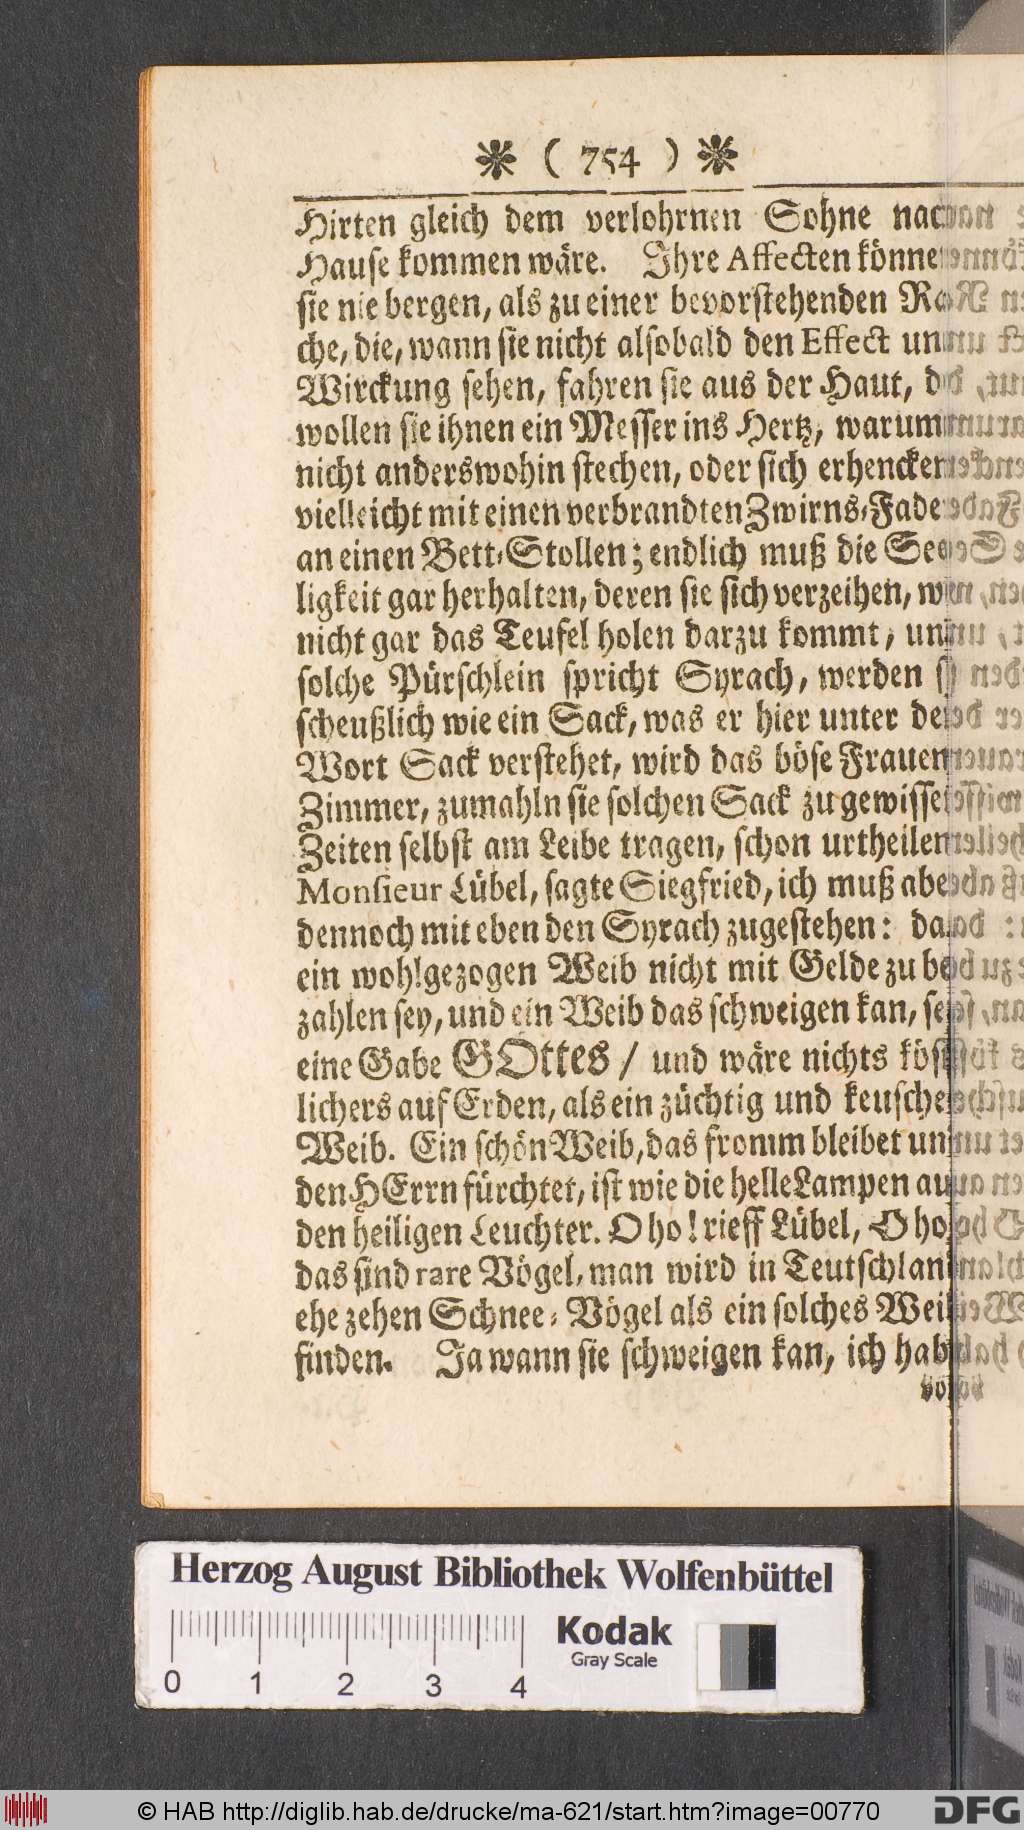 ❋ ( 754 ) ❋
Hirten gleich dem verlohrnen Sohne nach
Hause kommen wäre. Ihre Affecten können
sie nie bergen, als zu einer bevorstehenden Ra-
che, die, wann sie nicht alsobald den Effect und
Wirckung sehen, fahren sie aus der Haut, da
wollen sie ihnen ein Messer ins Hertz, warum
nicht anderswohin stechen, oder sich erhencken
vielleicht mit einen verbrandten Zwirns-Faden
an einen Bett-Stollen; endlich muß die See-
ligkeit gar herhalten, deren sie sich verzeihen, wo
nicht gar das Teufel holen darzu kommt, und
solche Pürschlein spricht Syrach, werden so
scheußlich wie ein Sack, was er hier unter den
Wort Sack verstehet, wird das böse Frauen-
Zimmer, zumahln sie solchen Sack zu gewissen
Zeiten selbst am Leibe tragen, schon urtheilen
Monsieur Lübel, sagte Siegfried, ich muß aber
dennoch mit eben den Syrach zugestehen: daß
ein wohlgezogen Weib nicht mit Gelde zu be-
zahlen sey, und ein Weib das schweigen kan, sey
eine Gabe GOttes / und wäre nichts köst-
lichers auf Erden, als ein züchtig und keusches
Weib. Ein schön Weib, das fromm bleibet und
den HErrn fürchtet, ist wie die helle Lampen auf
den heiligen Leuchter. O ho! rieff Lübel, O ho
das sind rare Vögel, man wird in Teutschland
ehe zehen Schnee-Vögel als ein solches Weib
finden. Ja wann sie schweigen kan, ich hab
Herzog August Bibliothek Wolfenbüttel
Kodak
Gray Scale
0 1 2 3 4
© HAB http://diglib.hab.de/drucke/ma-621/start.htm?image=00770
DFG